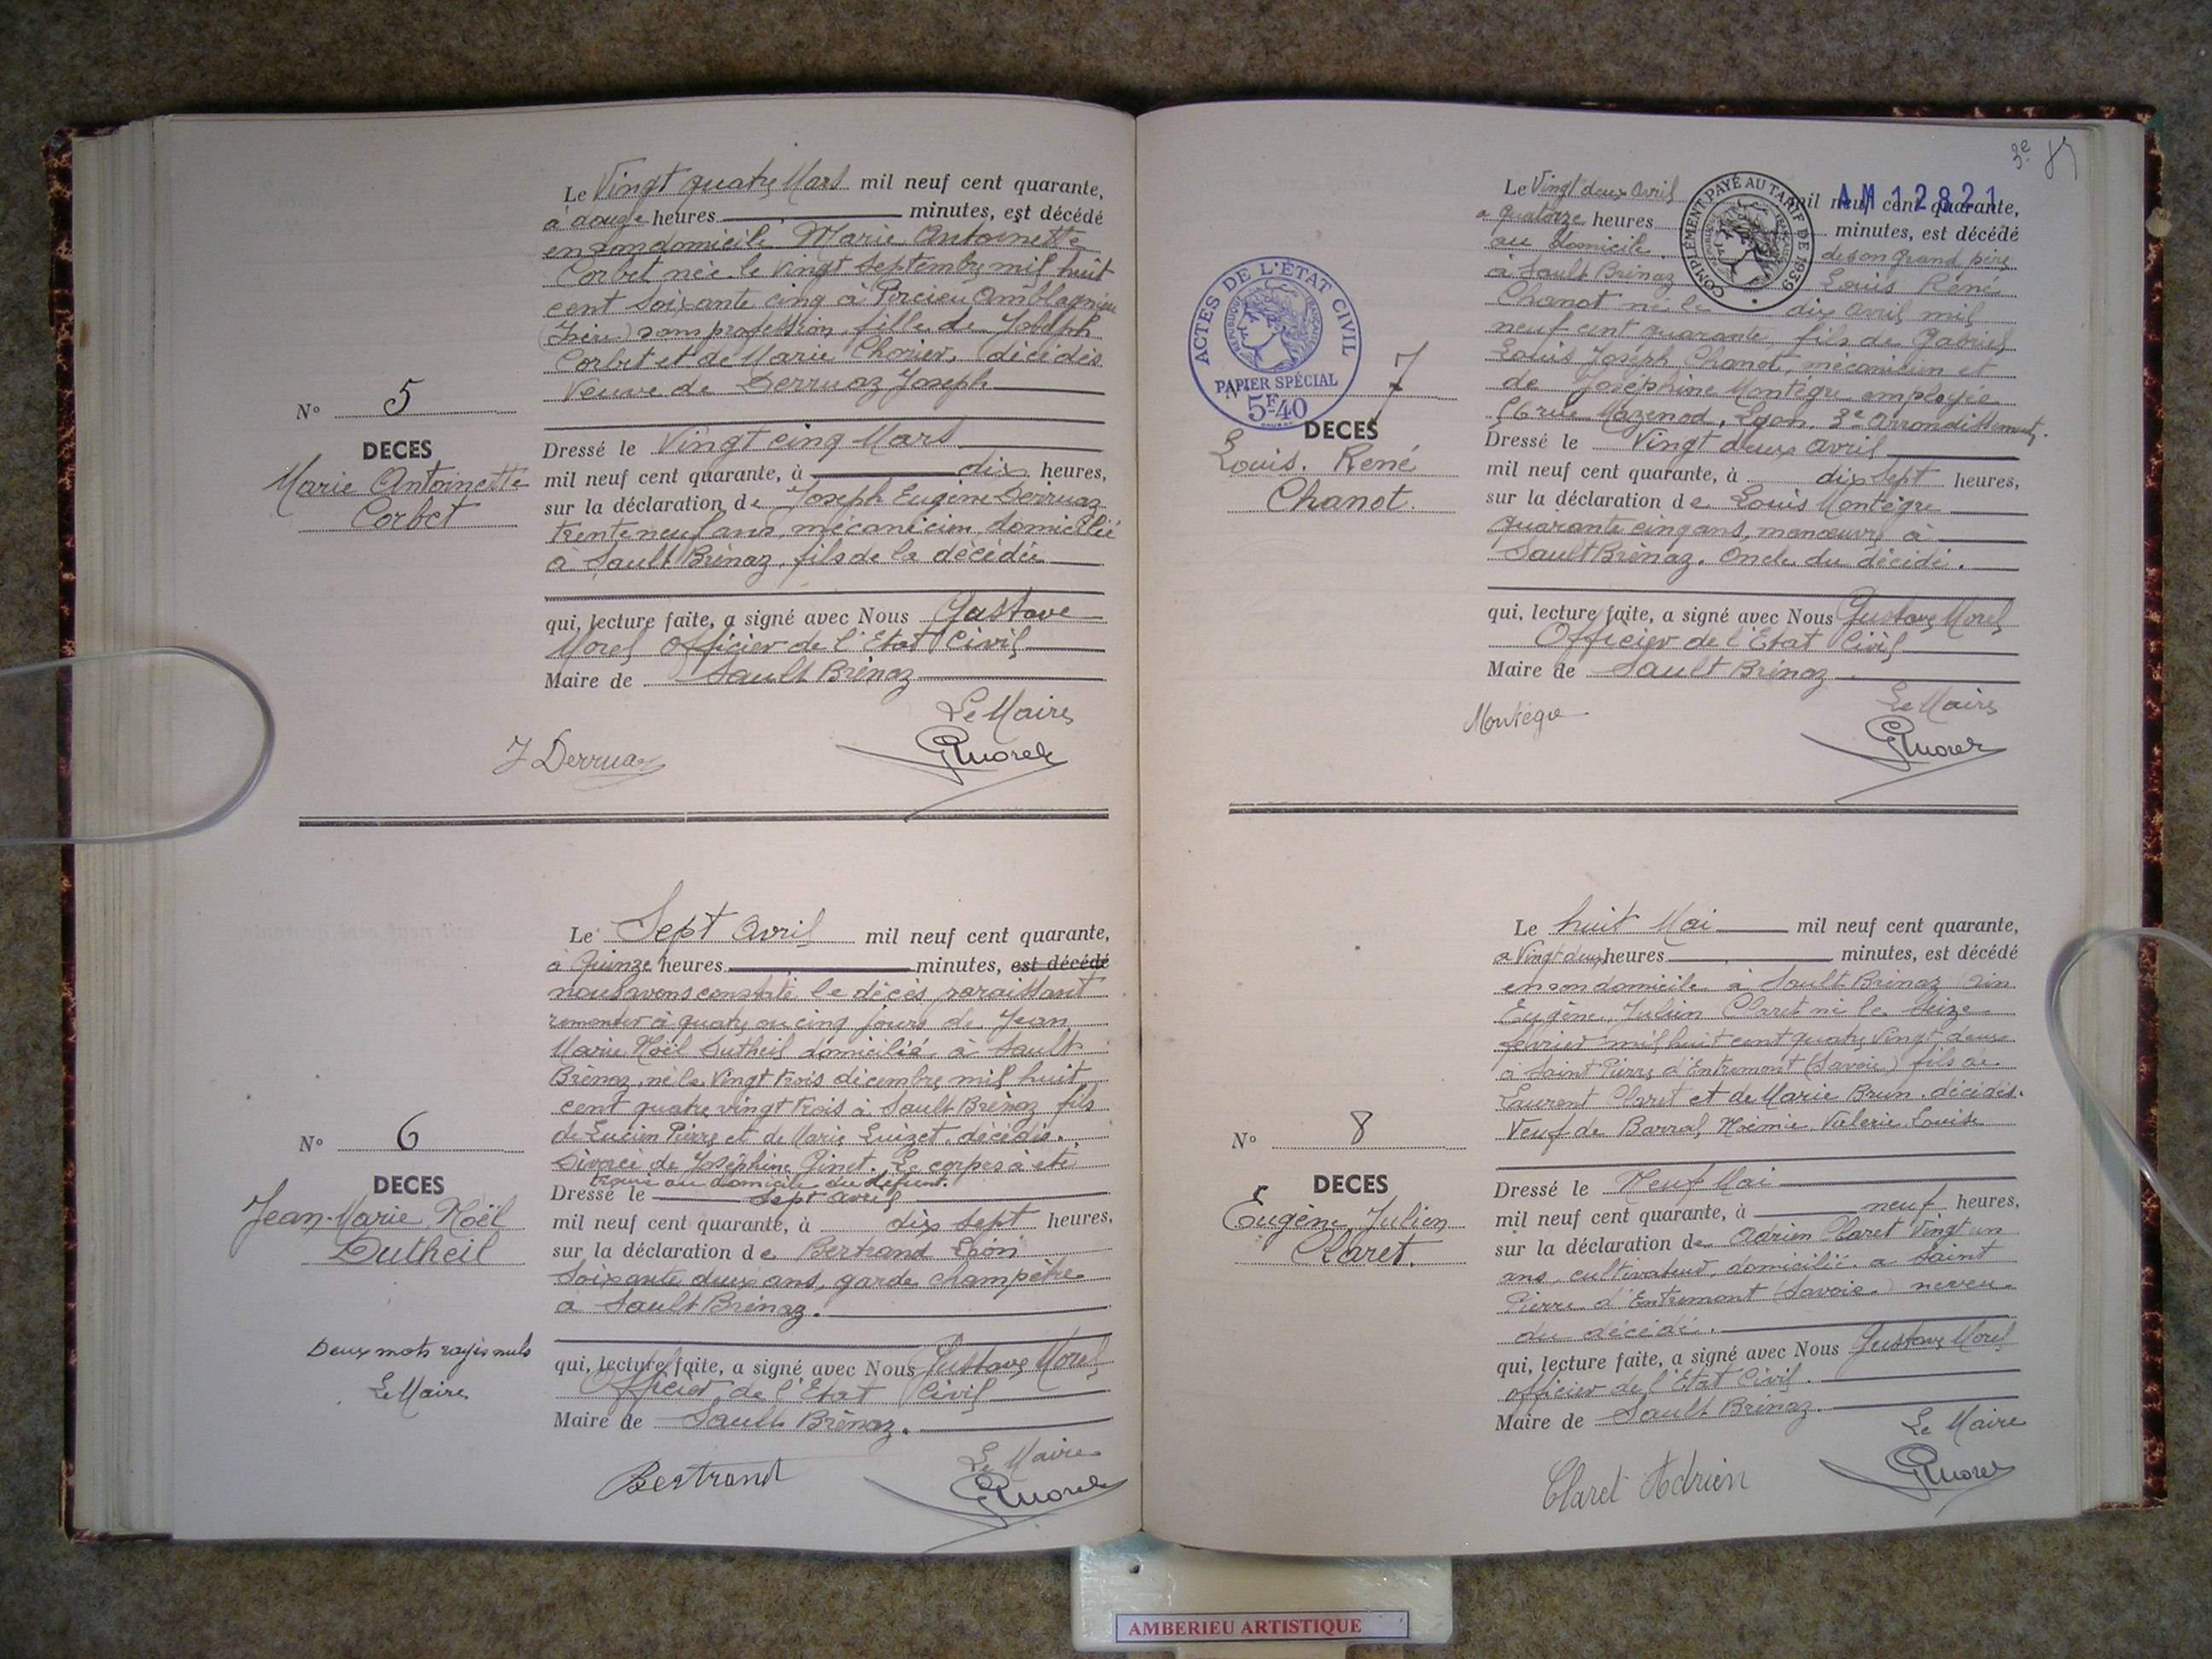 Le Vingt quatre Mars mil neuf cent quarante,
à douze heures minutes, est décédé
en son domicile Marie Antoinette
Corbet née le vingt septembre mil huit
cent soixante cinq à Porcieu Amblagnieu
(Isère) sans profession, fille de Joseph
Corbet et de Marie Chorier, décédés
Veuve de Derruaz Joseph
N° 5
DECES
Marie Antoinette
Corbet
Dressé le Vingt cinq Mars
mil neuf cent quarante, à dix heures,
sur la déclaration de Joseph Eugène Derruaz
trente neuf ans, mécanicien, domicilié
à Sault Brénaz, fils de la décédée
qui, lecture faite, a signé avec Nous Gustave
Morel Officier de l'Etat Civil
Maire de Sault Brénaz
Le Maire
J Derruaz
GMorel
Le Sept Avril mil neuf cent quarante,
à Quinze heures minutes, est décédé
nous avons constaté le décès paraissant
remonter à quatre ou cinq jours de Jean
Marie Noël Dutheil domicilié à Sault
Brénaz, né le Vingt trois décembre mil huit
cent quatre vingt trois à Sault Brénaz fils
de Lucien Pierre et de Marie Luizet, décédés.
Divorcé de Joséphine Ginet. Le corps à été
trouvé au domicile du défunt.
N° 6
DECES
Jean-Marie Noël
Dutheil
Dressé le sept avril
mil neuf cent quarante, à dix sept heures,
sur la déclaration de Bertrand Léon
soixante deux ans, garde champêtre
à Sault Brénaz.
Deux mots rayés nuls
Le Maire
qui, lecture faite, a signé avec Nous Gustave Morel
Officier de l'Etat Civil
Maire de Sault Brénaz.
Le Maire
Bertrand
GMorel
3e
AM 12821
COMPLÉMENT PAYÉ AU TARIF DE 1939
Le Vingt deux Avril mil neuf cent quarante,
à quatorze heures minutes, est décédé
au domicile de son grand père
à Sault Brénaz Louis René
Chanot né le dix avril mil
neuf cent quarante, fils de Gabriel
Louis Joseph Chanot, mécanicien et
de Joséphine Montègre employée
56 rue Mazenod, Lyon, 3e arrondissement.
ACTES DE L'ÉTAT CIVIL
RÉPUBLIQUE FRANÇAISE
PAPIER SPÉCIAL
5F40
7
DECES
Louis, René
Chanot.
Dressé le Vingt deux avril
mil neuf cent quarante, à dix sept heures,
sur la déclaration de Louis Montègre
quarante cinq ans, manœuvre à
Sault Brénaz. Oncle du décédé.
qui, lecture faite, a signé avec Nous Gustave Morel
Officier de l'Etat Civil
Maire de Sault Brénaz
Le Maire
Montègre
GMorel
Le huit Mai mil neuf cent quarante,
à Vingt deux heures minutes, est décédé
en son domicile à Sault Brénaz Ain
Eugène, Julien Claret né le Seize
février mil huit cent quatre vingt deux
à Saint Pierre d'Entremont (Savoie) fils de
Laurent Claret et de Marie Brun, décédés.
Veuf de Barral, Noémie, Valérie, Louise
N° 8
DECES
Eugène Julien
Claret.
Dressé le Neuf Mai
mil neuf cent quarante, à neuf heures,
sur la déclaration de Adrien Claret Vingt un
ans, cultivateur, domicilié à Saint
Pierre d'Entremont (Savoie) neveu
du décédé.
qui, lecture faite, a signé avec Nous Gustave Morel
officier de l'Etat Civil.
Maire de Sault Brénaz.
Le Maire
Claret Adrien
GMorel
AMBERIEU ARTISTIQUE